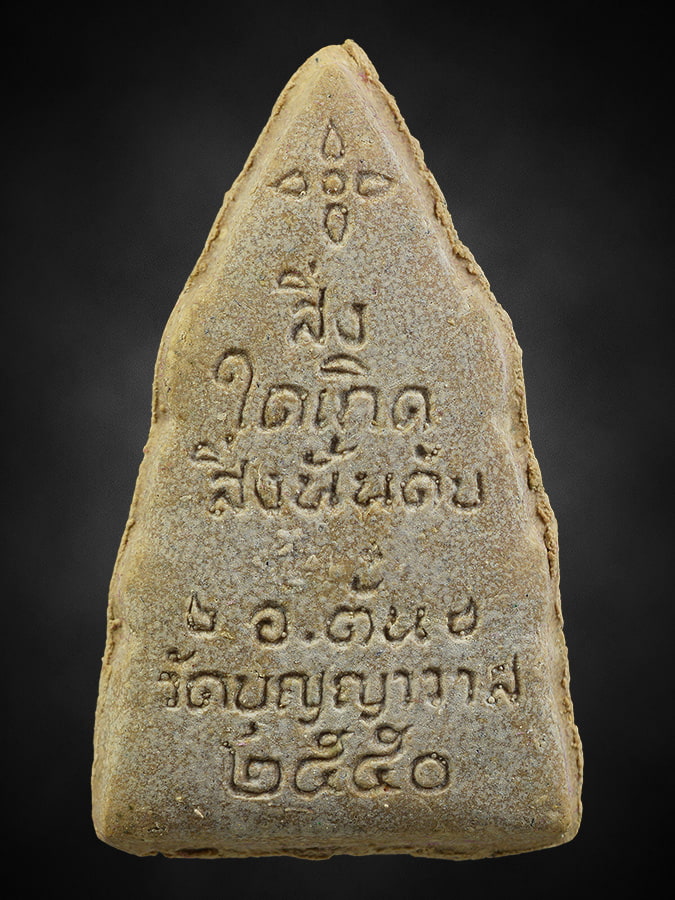 สิ่ง
ใดเกิด
สิ่งนั้นดับ
อ.ตั๋น
วัดบุญญาวาส
๒๕๕๐